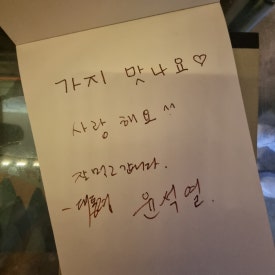 가지 맛나요♡
사랑해요^^
잘먹고 갑니다.
-대통령 윤석열.